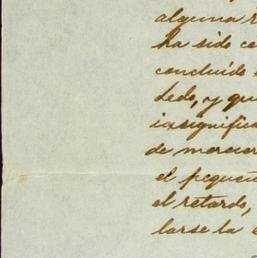 alguna
ha sido
concluido
dedo, y que
insignifica
de mencion
el pequeñ
el retardo,
larse la